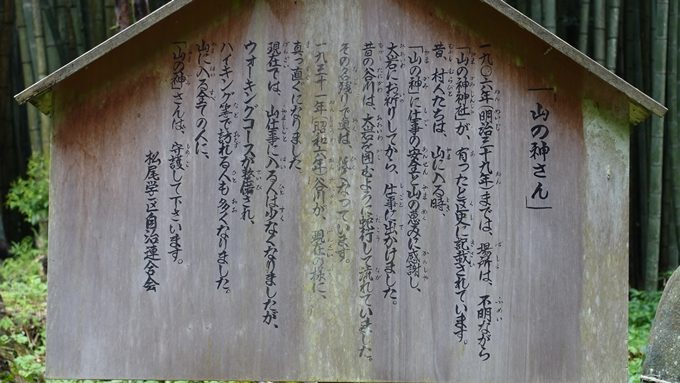 「山の神さん」
一九〇六年(明治三十九年)までは、場所は、不明ながら
「山の神神社」が、有ったと区史に記載されています。
昔、村人たちは、山に入る時、
「山の神」に仕事の安全と山の恵みに感謝し、
大岩にお祈りしてから、仕事に出かけました。
昔の谷川は、大岩を囲むように蛇行して流れていました。
その名残りで奥は、広くなっています。
一九三一年(昭和六年)谷川が、現在の様に、
真っ直ぐになりました
現在では、山仕事に入る人は少なくなりましたが、
ウォーキングコースが整備され、
ハイキング等で訪れる人も多くなりました。
山に入る全ての人に、
「山の神」さんは、守護して下さいます。
松尾学区自治連合会